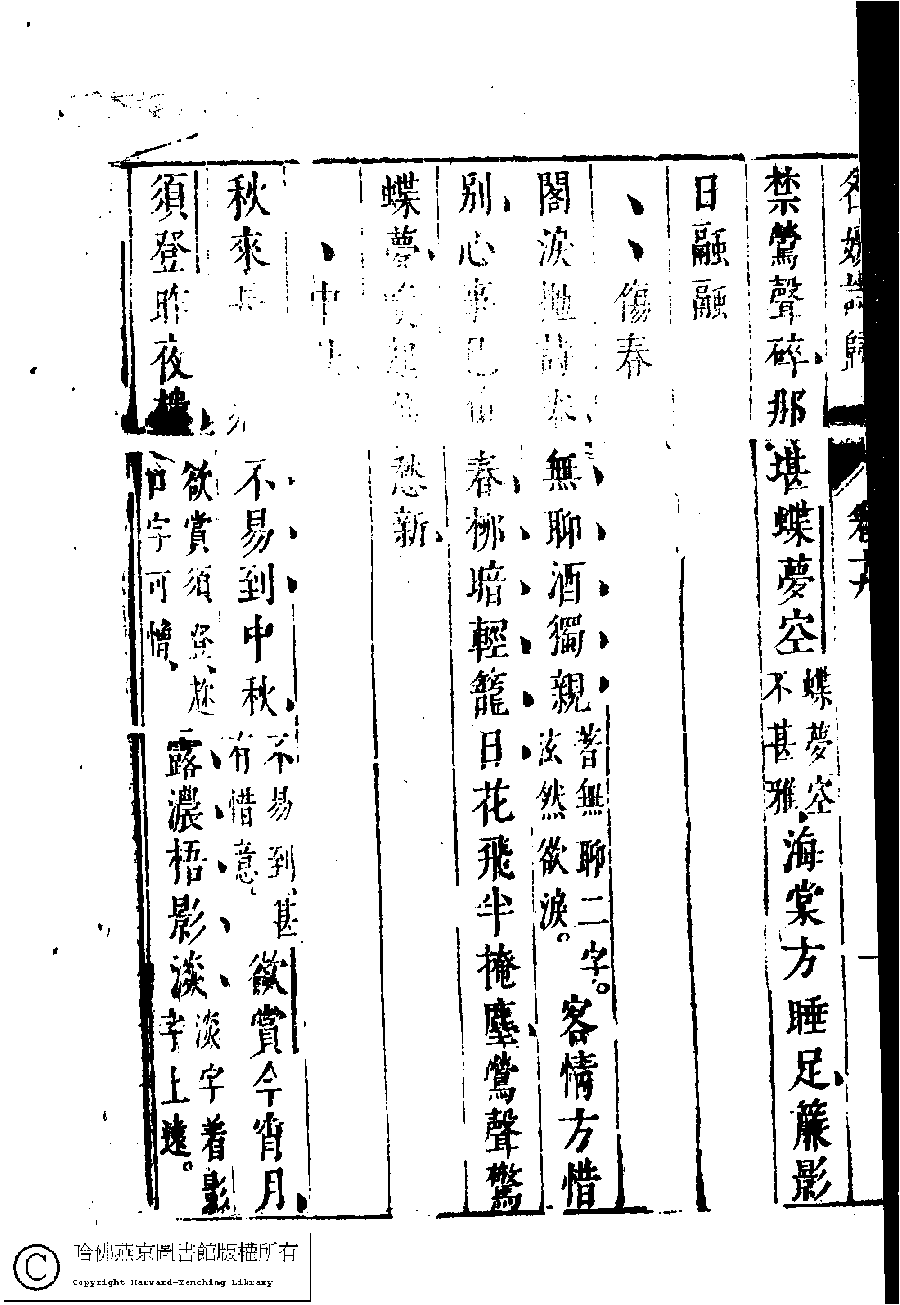 名媛詩歸 卷十六
禁鶯聲碎那堪蝶夢空蝶夢空不甚雅海棠方睡足簾影
日融融
傷春
閣淚拋詩卷無聊酒獨親著無聊二字。泫然欲淚。客情方惜
別心事已傷春柳暗輕籠日花飛半掩塵鶯聲驚
蝶夢喚起舊愁新
中秋
秋來長 不易到中秋不易到甚有惜意欲賞今宵月
須登昨夜樓欲賞須登 字可憎露濃梧影淡淡字着影字上遠。
哈佛燕京圖書館版權所有
Copyright Harvard-Yenching Library